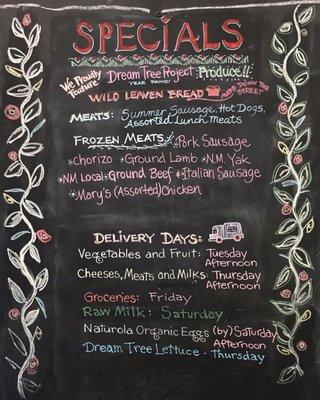 SPECIALS
We Proudly Feature: Dream Tree Project Produce!!
YEAR ROUND!
WILD LEAVEN BREAD MADE DOWN THE STREET
MEATS: Summer Sausage, Hot Dogs,
Assorted Lunch Meats
FROZEN MEATS: *Pork Sausage
*Chorizo *Ground Lamb *N.M. Yak
*NM Local Ground Beef *Italian Sausage
*Mary's (Assorted) Chicken
DELIVERY DAYS:
Vegetables and Fruit: Tuesday
Afternoon
Cheeses, Meats and Milks: Thursday
Afternoon
Groceries: Friday
Raw Milk: Saturday
Naturola Organic Eggs (by) Saturday
Afternoon
Dream Tree Lettuce - Thursday